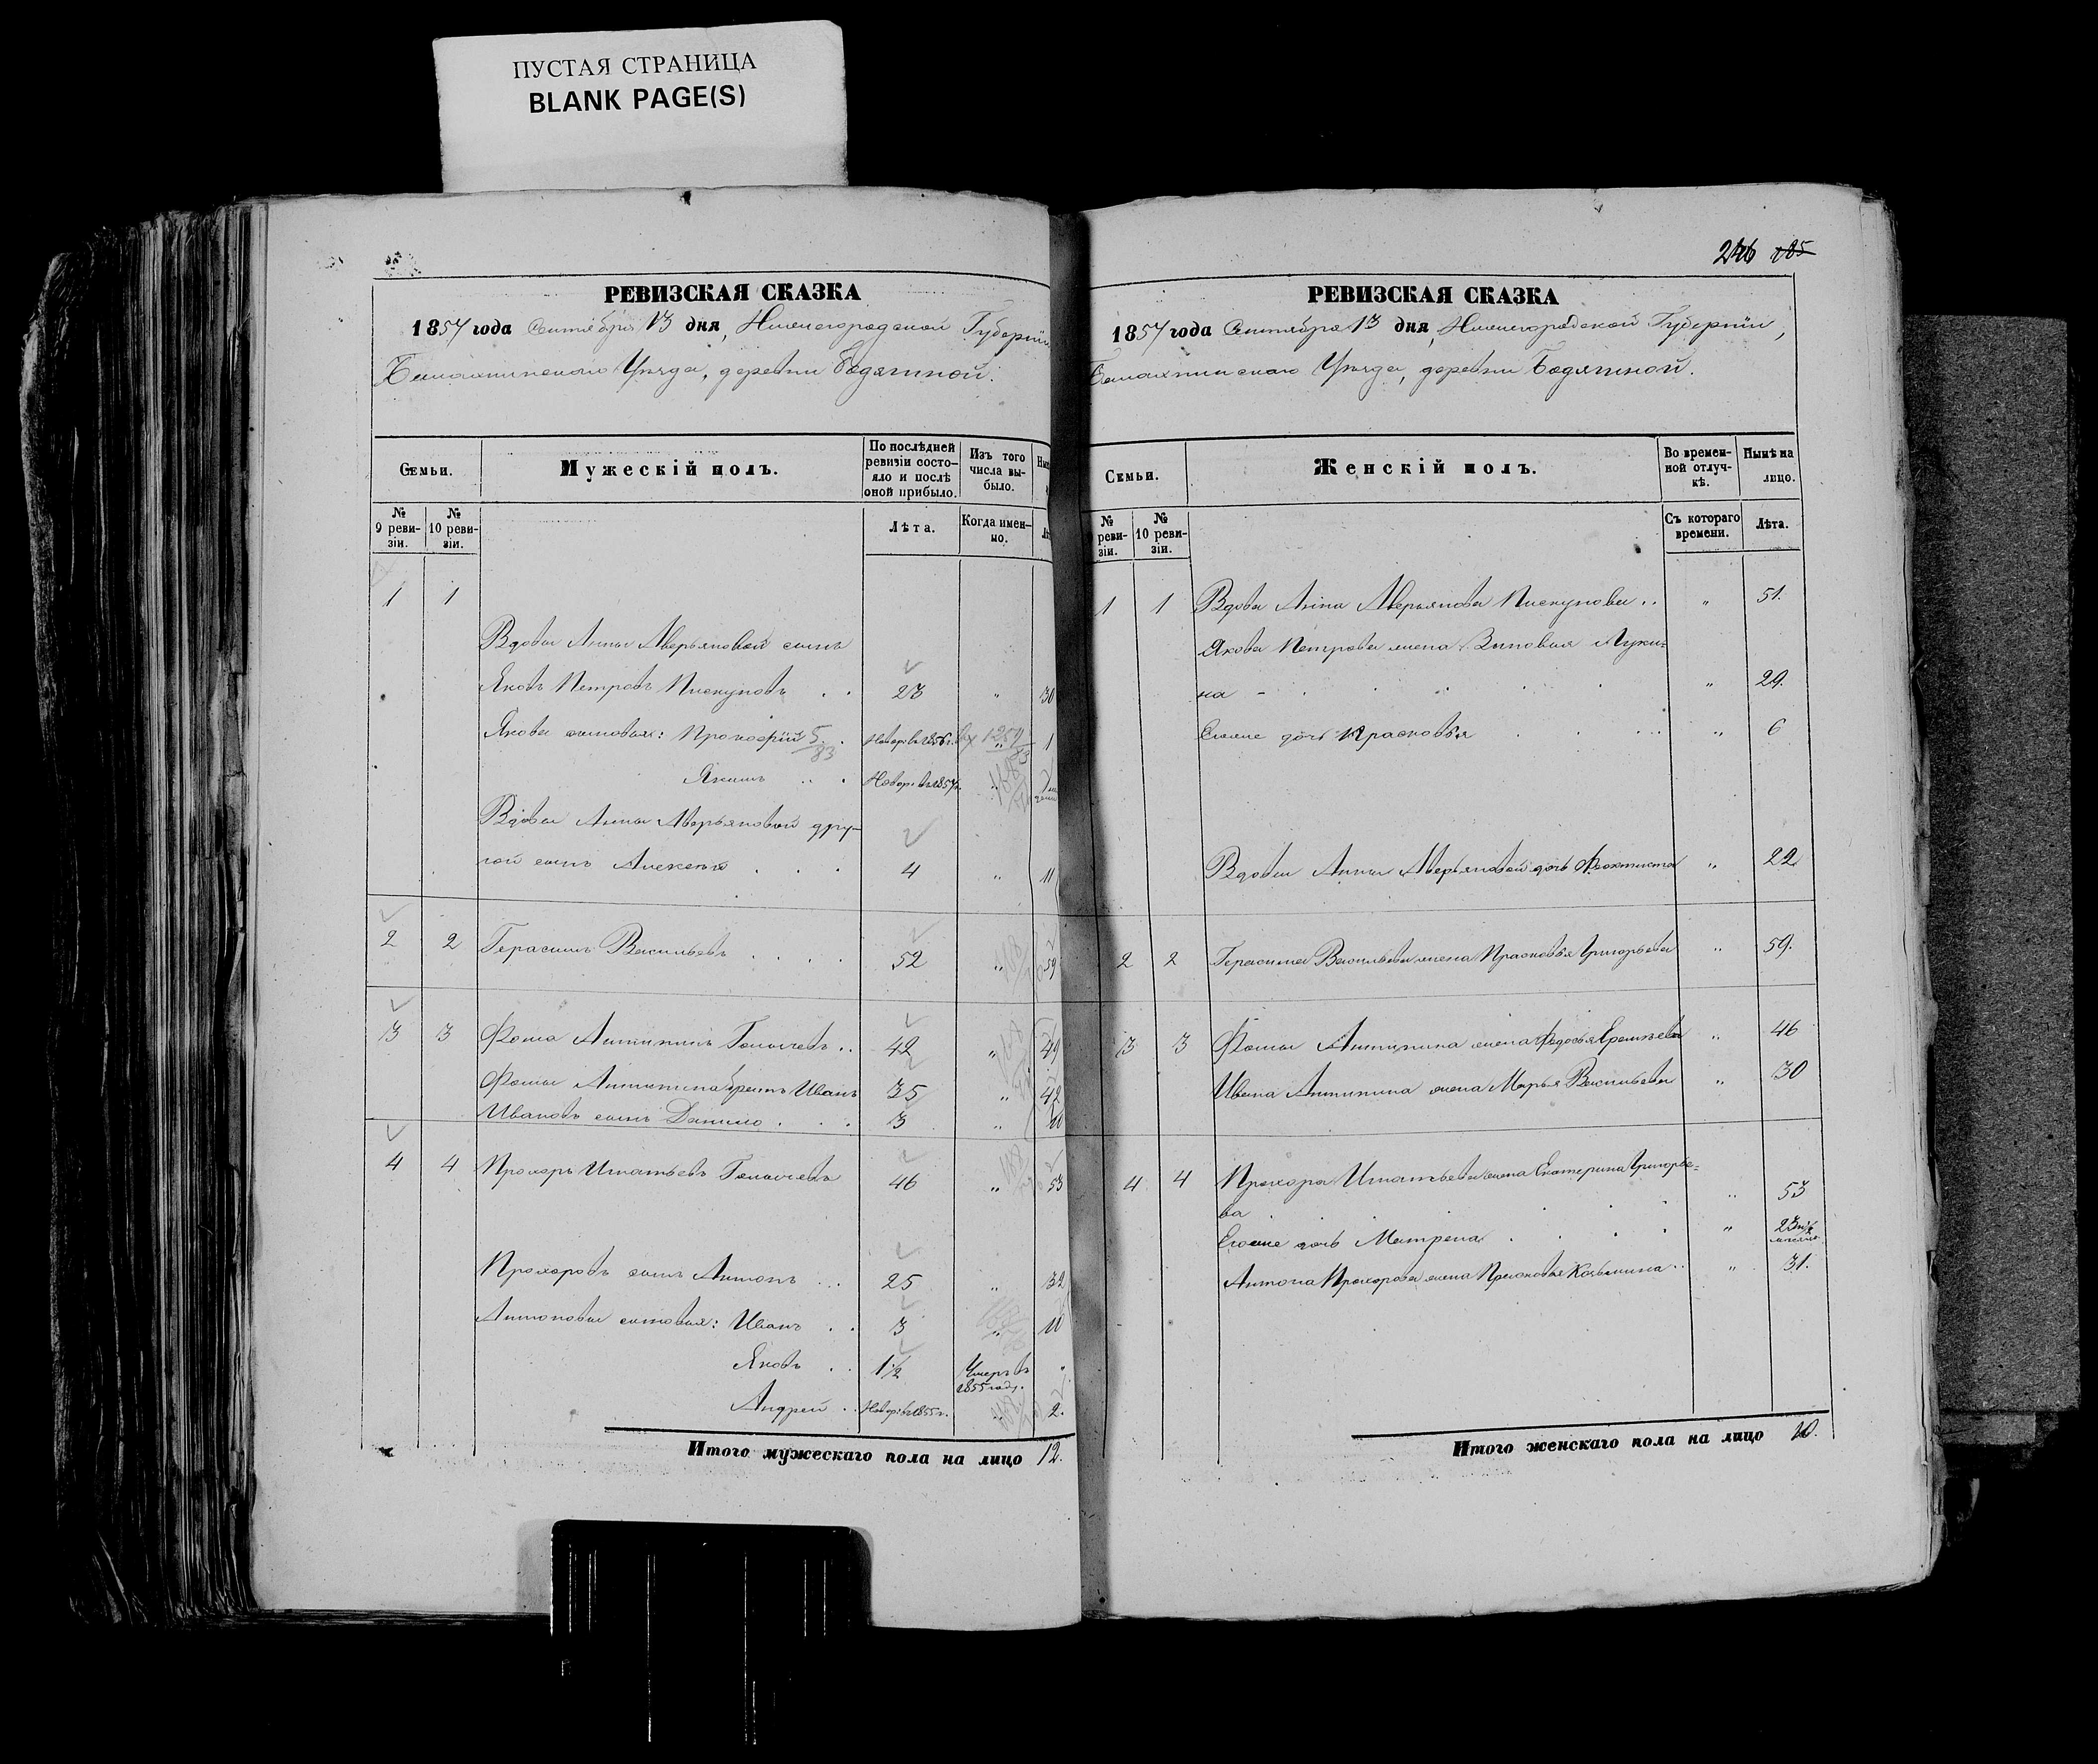 ПУСТАЯ СТРАНИЦА
BLANK PAGE(S)
РЕВИЗСКАЯ СКАЗКА
1857 года Сентября 13 дня, Нижегородской Губернии
Балахнинскаго Уѣзда, деревни Бодягиной.
Семьи.
Мужескій полъ.
По послѣдней ревизіи состо-
яло и послѣ
оной прибыло.
Изъ того
числа вы-
было.
№
9 реви-
зіи.
№
10 реви-
зіи.
Лѣта.
Когда имен-
но.
1 1
Вдовы Анны Аверьяновой сынъ
Яковъ Петровъ Пискуновъ . . 23 " 30
Якова сыновья: Прокофій 5/83 . Новорж. въ 1856 г. " 1
Якимъ . . . Новорж. въ 1857 г. "
Вдовы Анны Аверьяновой дру-
гой сынъ Алексѣй . . . 4 " 11
2 2 Герасимъ Васильевъ . . . . 52 " 59
3 3 Фома Антипинъ Голычевъ . . 42 " 49
Фомы Антипина братъ Иванъ 35 " 42
Ивановъ сынъ Данило . . . 3 " 10
4 4 Прохоръ Игнатьевъ Голычевъ 46 " 53
Прохоровъ сынъ Антонъ . . . 25 " 32
Антоновы сыновья: Иванъ . . 3 " 10
Яковъ . . 1½ Умеръ въ
1855 году. "
Андрей . . Новорж. въ 1855 г. " 2.
Итого мужескаго пола на лицо 12.
246 105
РЕВИЗСКАЯ СКАЗКА
1857 года Сентября 13 дня, Нижегородской Губерніи,
Балахнинскаго Уѣзда, деревни Бодягиной.
Семьи.
Женскій полъ.
Во времен-
ной отлуч-
кѣ.
Нынѣ на
лицо.
№
реви-
зіи.
№
10 реви-
зіи.
Съ котораго
времени.
Лѣта.
1 1 Вдова Анна Аверьянова Пискунова . . " 51.
Якова Петрова жена Зиновья Луки=
на - . . . . . " 29.
Ихже дочь Прасковья . . . . " 6
Вдовы Анны Аверьяновой дочь Феоктиста " 22
2 2 Герасима Васильева жена Прасковья Григорьева " 59.
3 3 Фомы Антипина жена Федосья Еремѣева " 46
Ивана Антипина жена Марья Васильева " 30
4 4 Прохора Игнатьева жена Екатерина Григорье=
ва . . . . . " 53
Егоже дочь Матрена . . . . "
Антона Прохорова жена Прасковья Козьмина . . " 31.
Итого женскаго пола на лицо 10.